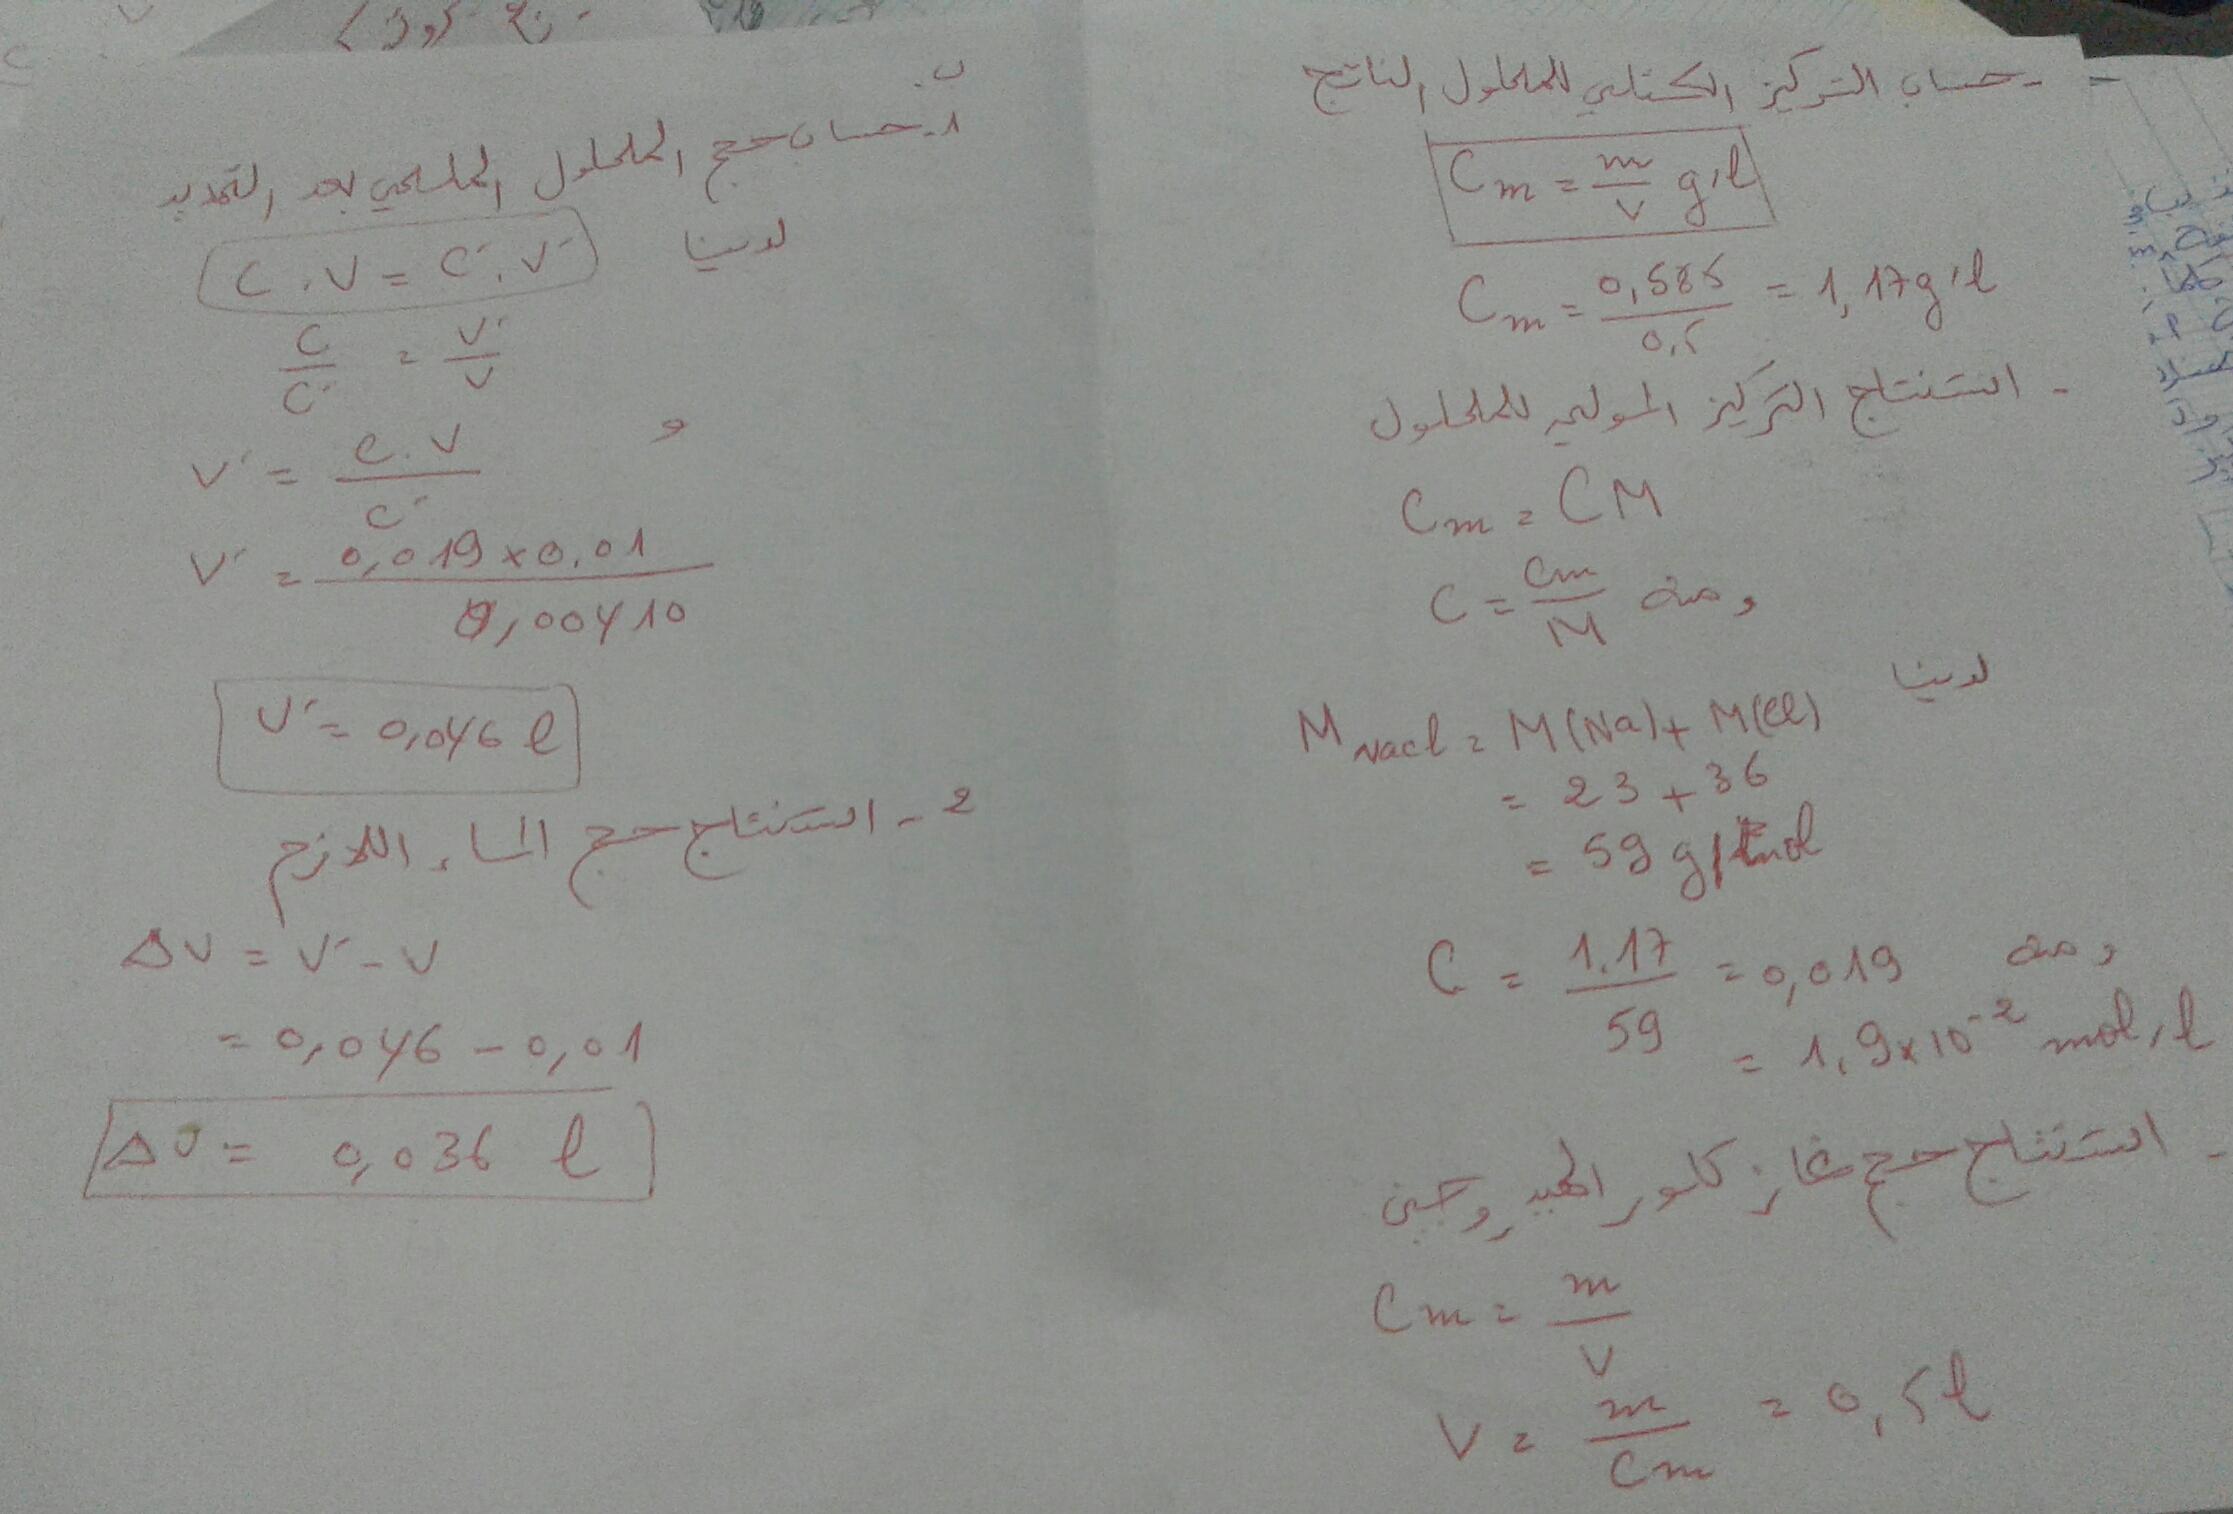 - حساب التركيز الكتلي للمحلول الناتج
Cm = m/V g/l
Cm = 0,585/0,5 = 1,17 g/l
- استنتاج التركيز المولي للمحلول
Cm = CM
ومنه C = Cm/M
لدينا
M NaCl = M(Na) + M(Cl)
= 23 + 36
= 59 g/mol
ومنه C = 1.17/59 = 0,019
= 1,9×10⁻² mol/l
- استنتاج حجم غاز كلور الهيدروجين
Cm = m/V
V = m/Cm = 0,5 l
ب.
1- حساب حجم المحلول الملحي بعد التمديد
لدينا C.V = C'.V'
C/C' = V'/V
و
V' = C.V/C'
V' = 0,019 × 0,01/0,00410
V' = 0,046 l
2 - استنتاج حجم الماء اللازم
ΔV = V' - V
= 0,046 - 0,01
ΔV = 0,036 l